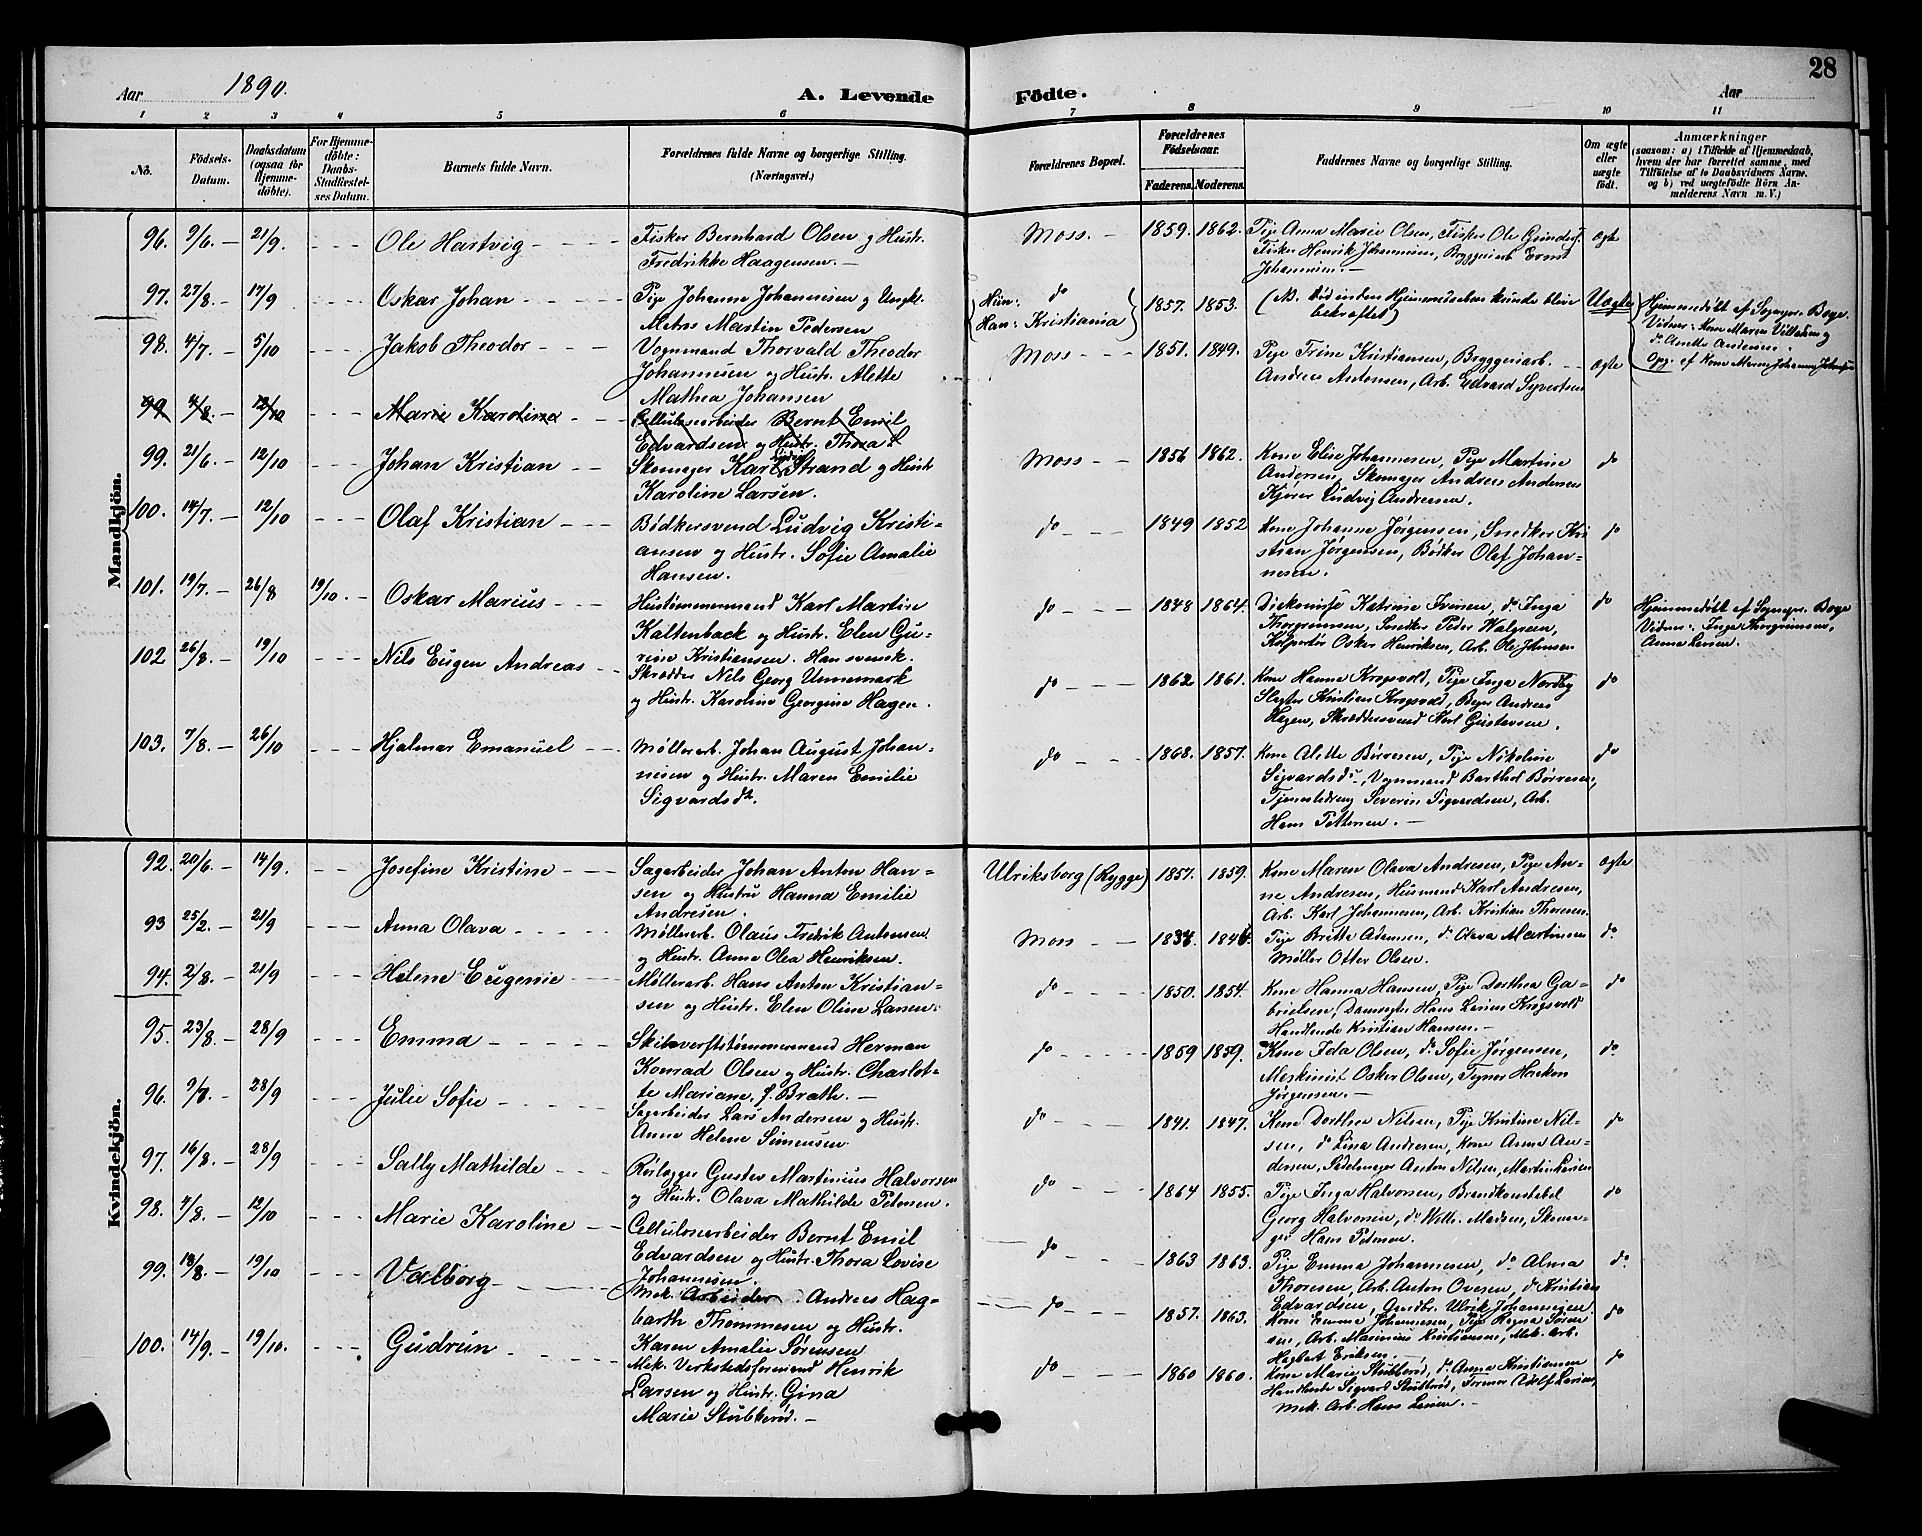 28
Aar 1890. A. Levende Födte. Aar
1 2 3 4 5 6 7 8 9 10 11
No. Födsels-Datum. Daabsdatum (ogsaa for Hjemmedöbte). For Hjemmedöbte: Daabs-Stadfæstelses Datum. Barnets fulde Navn. Forældrenes fulde Navne og borgerlige Stilling. (Næringsvei.) Forældrenes Bopæl. Forældrenes Födselsaar. Faderens. Moderens. Faddernes Navne og borgerlige Stilling. Om ægte eller uægte födt. Anmærkninger (saasom: a) i Tilfælde af Hjemmedaab, hvem der har forrettet samme, med Tilföielse af to Daabsvidners Navne. og b) ved uægtefödte Börn Anmelderens Navn m. V.)
Mandkjön.
96. 9/6. — 21/9. - - - Ole Hartvig - - - - Fisker Bernhard Olsen og Hustr. Moss. — 1859. 1862. Pige Anna Marie Olsen, Fisker Ole
Fredrikke Haagensen. — Fisker Henrik Johannesen, Bryggeriarb Ernst ægte
Johannesen. —
97. 27/8. — 17/9 - - - Oskar Johan - - - - Pige Johanne Johannesen og Ungkl. Hun: do 1857. 1853. (NB. Död inden Hjemmedaaben kunde blive Uægte Hjemmedöbt af Sognepr. Boge.
Matros Martin Pedersen Han: Kristiania bekræftet) Vidner: Kone Maren
98. 4/7. — 5/10 - - - Jakob Theodor - - - Vognmand Thorvald Theodor Moss - - - 1851. 1849. Pige Trine Kristiansen, Bryggeriarb. do Anette Andersen.
Johannesen og Hustr. Alette Andreas Antonsen, Arb. Edvard Syvertsen ægte Opg. af Kone Maren Johanne
Mathea Johansen
99 4/8. — 12/10 - - - Marie Karoline - - Cellulosearbeider Bernt Emil
Edvardsen og Hustr. Thora L
99. 21/6. — 12/10 - - - Johan Kristian - - Skomager Karl Strand og Hustr Moss - - 1856 1862. Kone Elise Johannesen, Pige Martine do
Karoline Larsen. Andersen, Skomager Andreas Andersen
Kjörer Ludvig Andreasen.
100. 14/7. — 12/10 - - - Olaf Kristian - - - Bödkersvend Ludvig Kristi- do - - - 1849 1852 Kone Johanne Jörgensen, Snedker Kri do
ansen og Hustr. Sofie Amalie stian Jörgensen, Bödker Olaf Johan-
Hansen. nesen.
101. 19/7. — 26/8 19/10. - Oskar Marius - - - Hustömmermand Karl Martin do - - - 1848 1864. Diakonisse Katrine Iversen, do Inga do Hjemmedöbt af Sognepr. Boge
Kaltenback og Hustr. Elen Gu- Thorgrimsen, Snedker Peder Walgreen, Vidner: Inga Thorgrimsen,
rine Kristiansen. Han svensk. Kolportör Oskar Henriksen, Arb. Ole Johnsen Anna Larsen.
102 26/8. — 19/10 - - - Nils Eugen Andreas - - Skrædder Nils Georg Unnemark do - - - 1862 1861. Kone Hanna Krogsvold, Pige Inga Nordby do
og Hustr. Karoline Georgine Hagen. Slagter Kristian Krogsvold, Bager Andreas
Hagen, Skræddersvend Karl Gustavsen.
103. 7/8. — 26/10 - - - Hjalmar Emanuel - - Möllerarb. Johan August Johan- do - - - 1868. 1857. Kone Alette Börresen, Pige Nikoline do
nesen og Hustr. Maren Emilie Sigvardsdr, Vognmand Barthol Börresen,
Sigvardsdr. Tjenestedreng Severin Sigvardsen, Arb.
Hans Pettersen. —
Kvindekjön.
92. 20/6. — 14/9. - - - Josefine Kristine - - - Sagarbeider Johan Anton Han- Ulriksborg (Rygge) 1857. 1859. Kone Maren Olava Andresen, Pige An- ægte
sen og Hustru Hanna Emilie ne Andresen, Husmand Karl Andresen,
Andresen. Arb. Karl Johannesen, Arb. Kristian Thoresen.
93 25/2. — 21/9 - - - Anna Olava - - - - Möllerarb. Olaus Fredrik Antonsen Moss - - 1834. 1846. Pige Britte Adamsen, do Olava Martinsen do.
og Hustr. Anne Olea Henriksen. Möller Otter Olsen.
94. 2/8. — 21/9 - - - Helene Eugenie - - - Möllerarb. Hans Anton Kristian- do - - - 1850. 1854. Kone Hanna Hansen, Pige Dorthea Ga- do
sen og Hustr. Elen Oline Larsen. brielsen, Hans Larsen Krogsvold
Handlende Kristian Hansen. —
95. 23/8. — 28/9 - - - Emma - - - - - Skibsverftstömmermand Herman do - - - - 1859 1859. Kone Ida Olsen, do Sofie Jörgensen, do.
Konrad Olsen og Hustr. Charlot- Maskinist Oskar Olsen, Hakon
te Mariane, f. Brath. — Jörgensen. —
96. 9/8. — 28/9 - - - Julie Sofie - - - - Sagarbeider Lars Andersen og Hustr. do - - - - 1841. 1847. Kone Dorthea Nilsen, Pige Kristine Nil- do
Anne Helene Simensen. sen, do Lina Andresen, Kone Anna An-
dersen, Sadelmager Anton Nilsen, Martin Larsen
97. 16/8. — 28/9 - - - Sally Mathilde - - - Rörlægger Gustav Martinius Halvorsen do - - - 1864 1855. Pige Inga Halvorsen, Brandkonstabel do
og Hustr. Olava Mathilde Petersen. Georg Halvorsen, do Madsen, Skoma-
ger Hans Petersen.
98. 4/8. — 12/10 - - - Marie Karoline - - Cellulosearbeider Bernt Emil do - - 1863 1863. Pige Emma Johannesen, do Alma do.
Edvardsen og Hustr. Thora Lovise Thoresen, Arb. Anton Ovesen, do Kristian
Johannesen. Edvardsen, Ulrik Johannesen
99. 18/8. — 19/10 - - - Valborg - - - - Mek. Arbeider Andreas Hag- do - - 1857. 1863. Kone Emma Johannesen, Pige Hagna Sören do
barth Thommesen og Hustr. sen, Arb. Marinius Kristiansen, Mek. Arb.
Karen Amalie Sörensen Hagbart Eriksen. —
100. 14/9. — 19/10. - - - Gudrun - - - - Mek. Verkstedsformand Henrik do - - - 1860 1860. Kone Marie Stubberöd, do Anna Kristiansen do
Larsen og Hustr. Gina Handlende Sigvard Stubberöd, Former Adolf Larsen,
Marie Stubberöd. — Mek. Arb. Hans Larsen. —